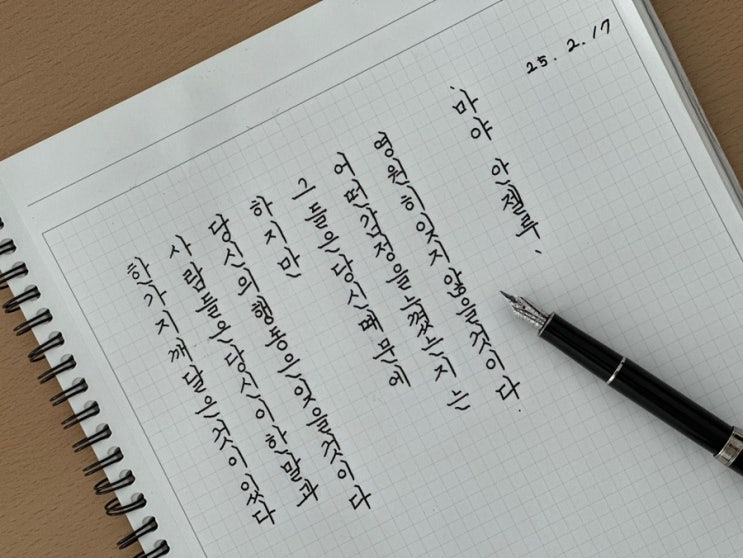 25. 2. 17
한가지깨달은것이있다
사람들은당신이한말과
당신의행동은잊을것이다
하지만
그들은당신때문에
어떤감정을느꼈는지는
영원히잊지않을것이다.
'마야 안젤루'